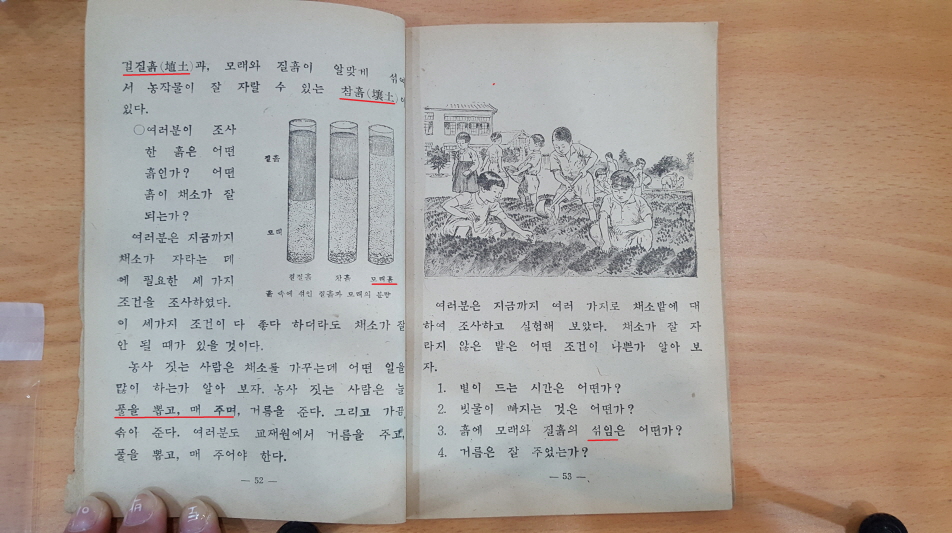 걸질흙(埴土)과, 모래와 질흙이 알맞게 섞여
서 농작물이 잘 자랄 수 있는 참흙(壤土)이
있다.
○여러분이 조사
한 흙은 어떤
흙인가? 어떤
흙이 채소가 잘
되는가?
여러분은 지금까지
채소가 자라는 데
에 필요한 세 가지
조건을 조사하였다.
질흙
모래
걸질흙 참흙 모래흙
흙 속에 섞인 질흙과 모래의 분량
이 세가지 조건이 다 좋다 하더라도 채소가 잘
안 될 때가 있을 것이다.
농사 짓는 사람은 채소를 가꾸는데 어떤 일을
많이 하는가 알아 보자. 농사 짓는 사람은 늘
풀을 뽑고, 매 주며, 거름을 준다. 그리고 가끔
솎아 준다. 여러분도 교재원에서 거름을 주고,
풀을 뽑고, 매 주어야 한다.
— 52 —
여러분은 지금까지 여러 가지로 채소밭에 대
하여 조사하고 실험해 보았다. 채소가 잘 자
라지 않은 밭은 어떤 조건이 나쁜가 알아 보
자.
1. 볕이 드는 시간은 어떤가?
2. 빗물이 빠지는 것은 어떤가?
3. 흙에 모래와 질흙의 섞임은 어떤가?
4. 거름은 잘 주었는가?
— 53 —